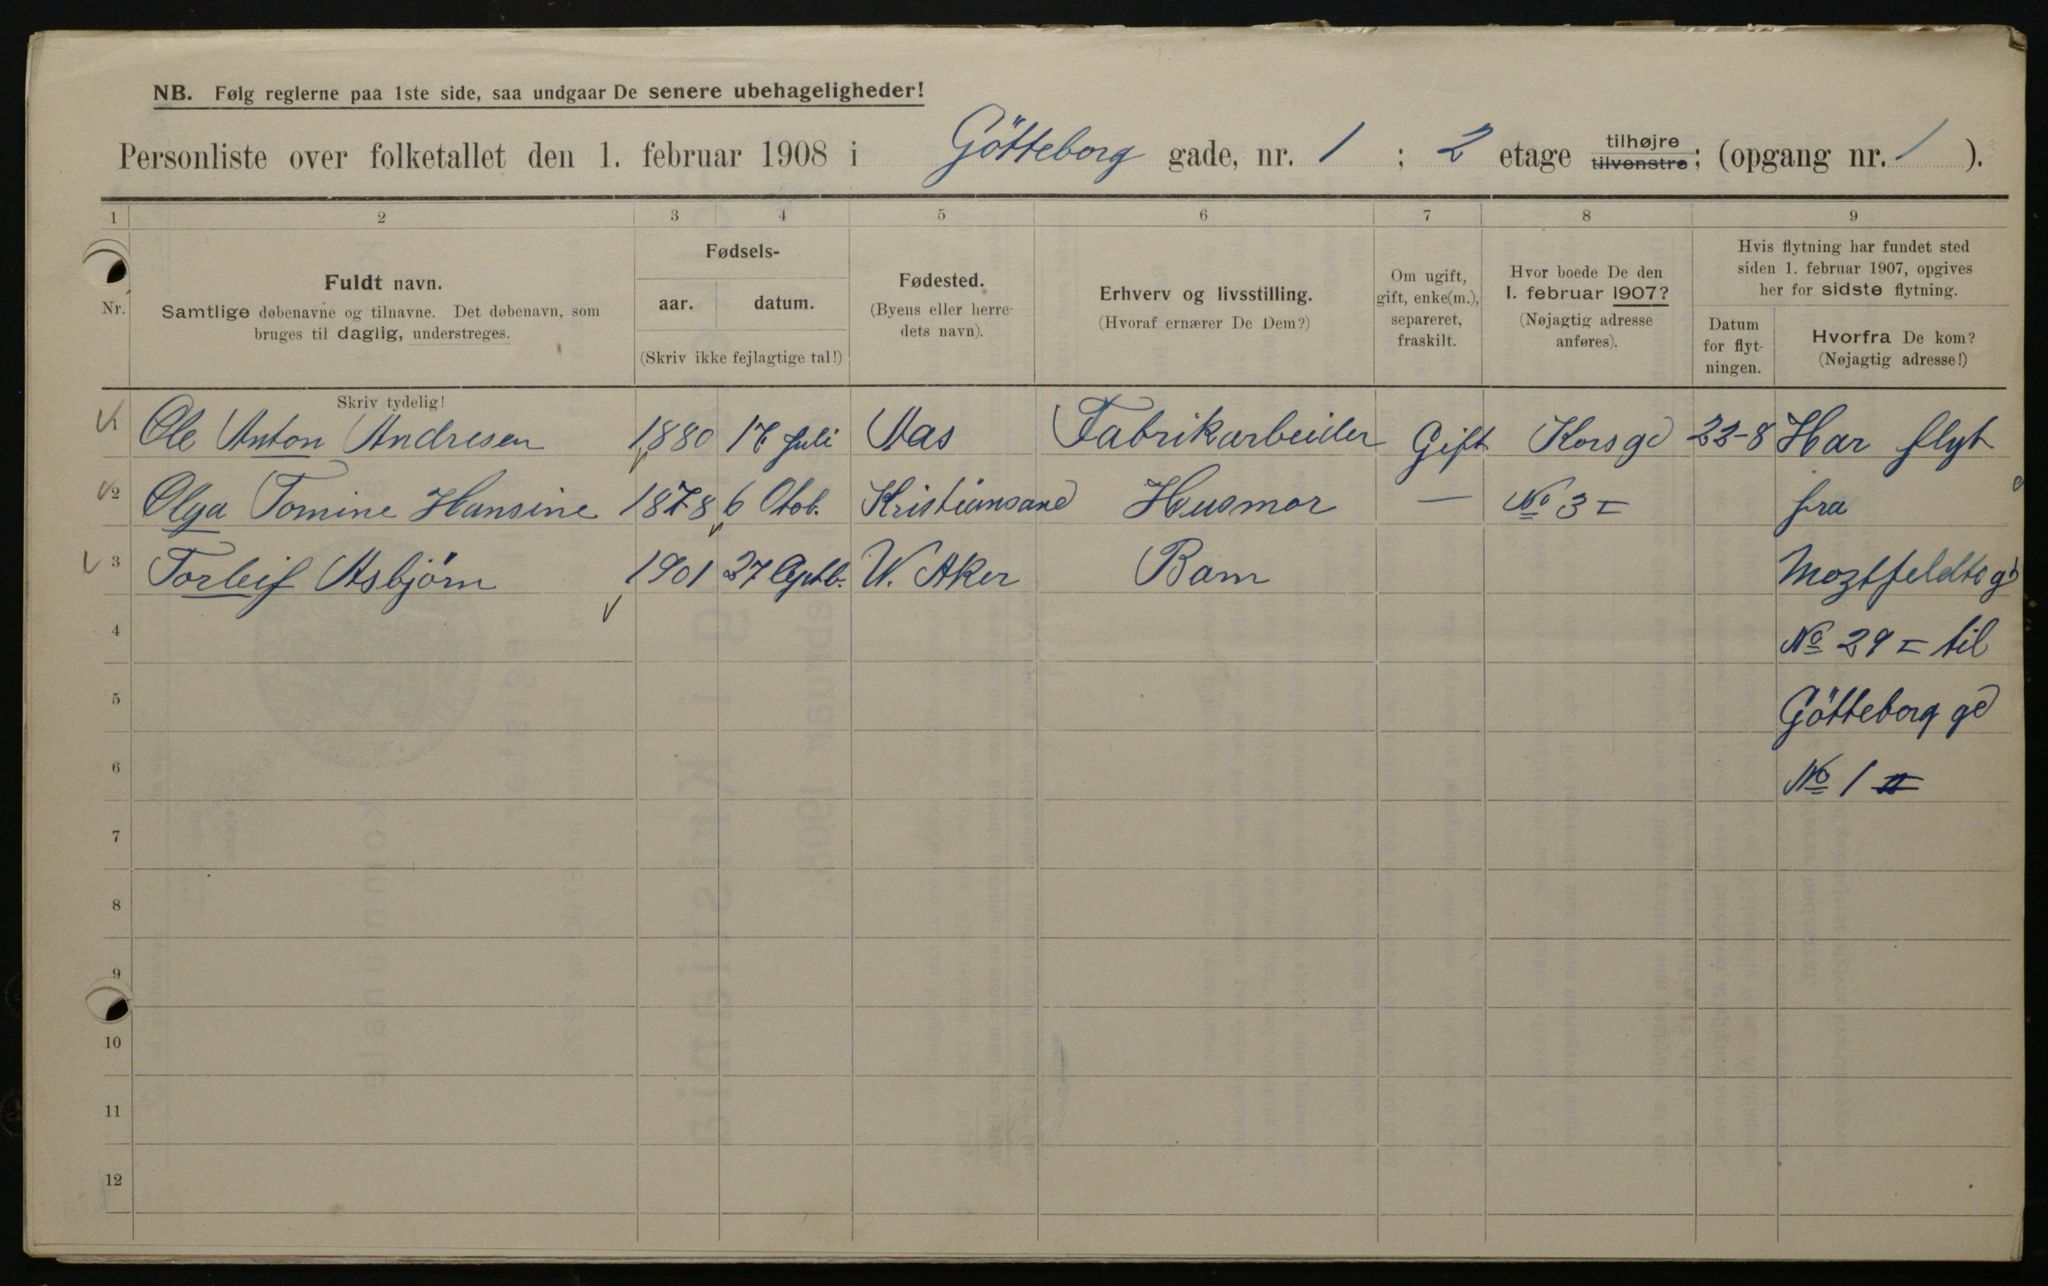 NB. Følg reglerne paa 1ste side, saa undgaar De senere ubehageligheder!
Personliste over folketallet den 1. februar 1908 i Götteborg gade, nr. 1 ; 2 etage tilhøjre tilvenstre; (opgang nr. 1 ).
1 2 3 4 5 6 7 8 9
Nr.
Fuldt navn.
Samtlige døbenavne og tilnavne. Det døbenavn, som
bruges til daglig, understreges.
Skriv tydelig!
Fødsels-
aar. datum.
(Skriv ikke fejlagtige tal!)
Fødested.
(Byens eller herre-
dets navn).
Erhverv og livsstilling.
(Hvoraf ernærer De Dem?)
Om ugift,
gift, enke(m.),
separeret,
fraskilt.
Hvor boede De den
1. februar 1907?
(Nøjagtig adresse
anføres).
Hvis flytning har fundet sted
siden 1. februar 1907, opgives
her for sidste flytning.
Datum
for flyt-
ningen.
Hvorfra De kom?
(Nøjagtig adresse!)
1 Ole Anton Andresen 1880 Juli Aas Fabrikarbeider Gift Korsgd 22-8 Har flyt
2 Olga Tomine Hansine 1878 6 Otob. Kristiansand Husmor — No 3 = fra
3 Torleif Asbjørn 1901 27 V. Aker Barn
4 No 29 = til
5 Götteborg gd
6 No 1
7
8
9
10
11
12